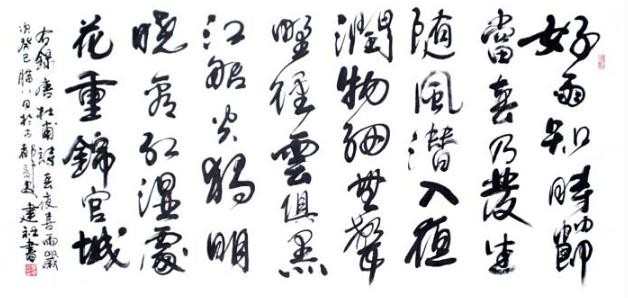 好雨知時節
當春乃發生
随風潛入夜
潤物細無聲
野徑雲俱黑
江船火獨明
曉看紅濕處
花重錦官城
右錄唐杜甫詩春夜喜雨
癸巳臘八日於古都長安建社書